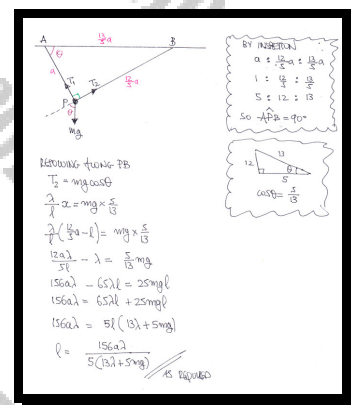 A
13/5 a
B
θ
a
T₁
T₂
12/5 a
P
θ
mg
BY INSPECTION
a : 12/5 a : 13/5 a
1 : 12/5 : 13/5
5 : 12 : 13
SO AP̂B = 90°
13
12
θ
5
cosθ = 5/13
RESOLVING ALONG PB
T₂ = mg cosθ
λ/l x = mg × 5/13
λ/l (12/5 a - l) = mg × 5/13
12aλ/5l - λ = 5/13 mg
156aλ - 65λl = 25mgl
156aλ = 65λl + 25mgl
156aλ = 5l(13λ + 5mg)
l = 156aλ / 5(13λ + 5mg)
AS REQUIRED